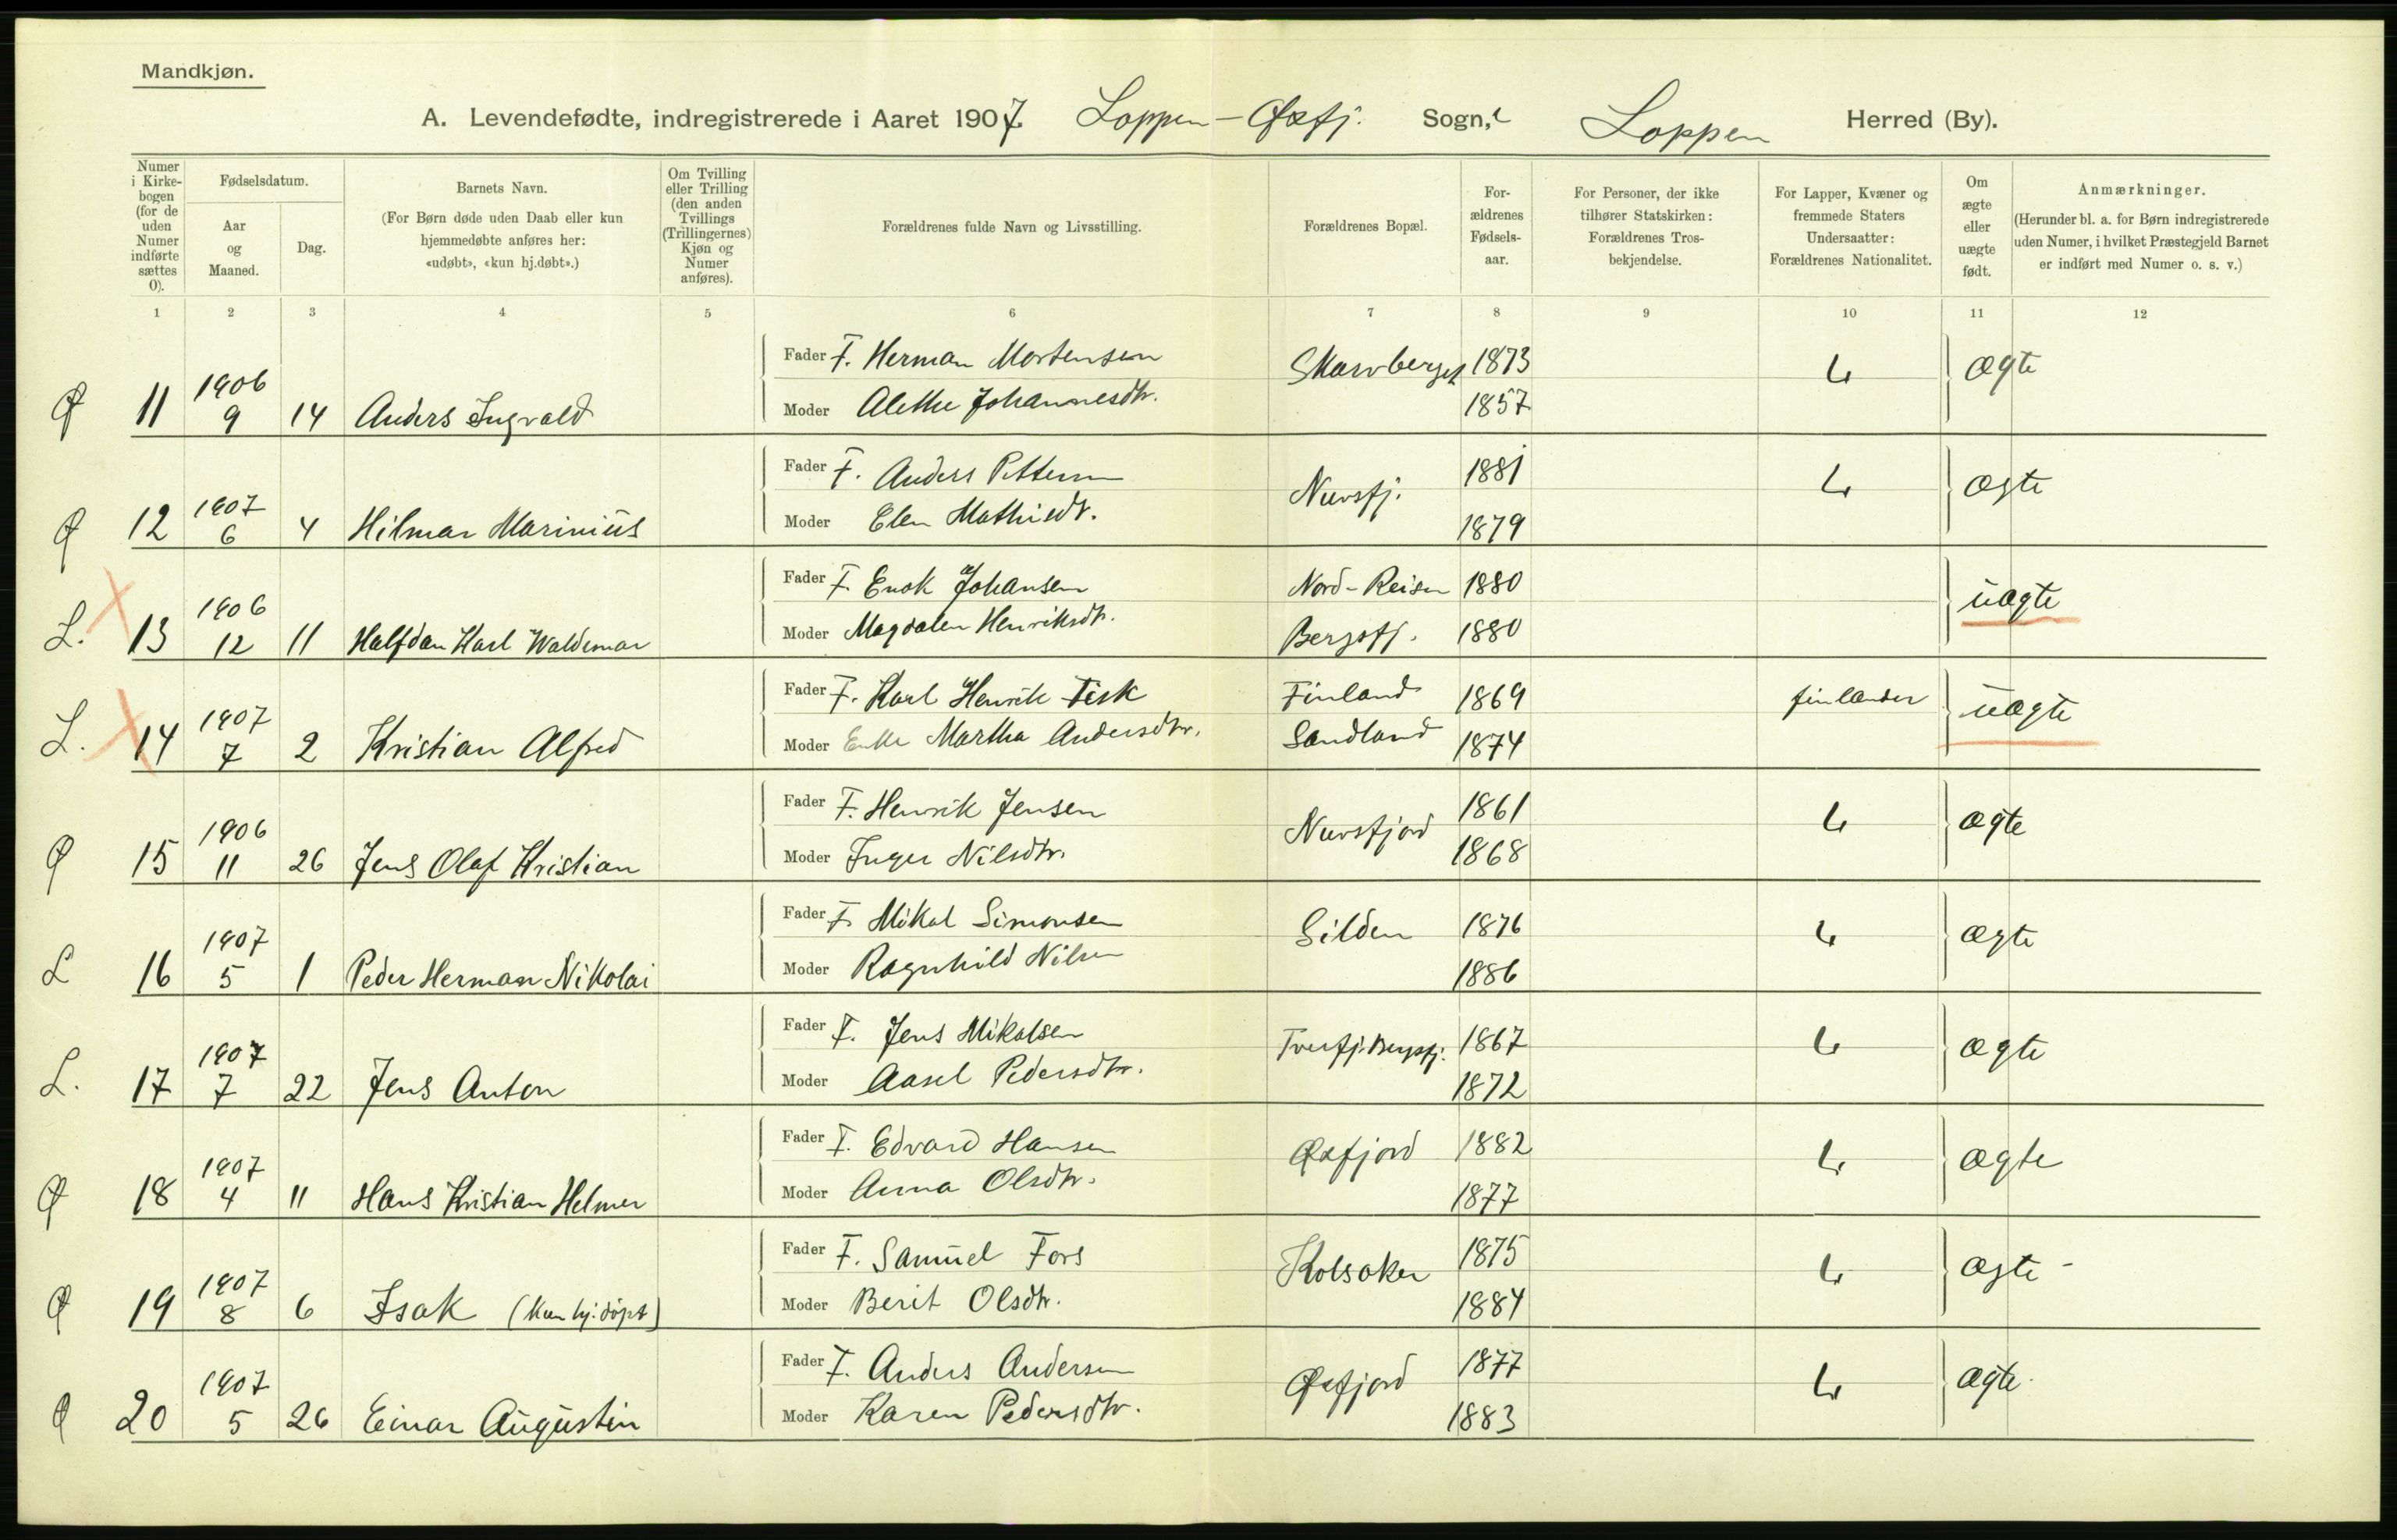 Mandkjøn.
A. Levendefødte, indregistrerede i Aaret 1907. Loppen - Øxfj. Sogn, Loppen Herred (By).
Numer i Kirkebogen (for de uden Numer indførte sættes 0).
Fødselsdatum.
Aar og Maaned.
Dag.
Barnets Navn.
(For Børn døde uden Daab eller kun hjemmedøbte anføres her: «udøbt», «kun hj.døbt».)
Om Tvilling eller Trilling (den anden Tvillings (Trillingernes) Kjøn og Numer anføres).
Forældrenes fulde Navn og Livsstilling.
Forældrenes Bopæl.
Forældrenes Fødselsaar.
For Personer, der ikke tilhører Statskirken: Forældrenes Trosbekjendelse.
For Lapper, Kvæner og fremmede Staters Undersaatter: Forældrenes Nationalitet.
Om ægte eller uægte født.
Anmærkninger.
(Herunder bl. a. for Børn indregistrerede uden Numer, i hvilket Præstegjeld Barnet er indført med Numer o. s. v.)
1 2 3 4 5 6 7 8 9 10 11 12
Fader F. Herman Mortensen Skarvberget 1873 L ægte
Ø 11 1906 9 14 Anders Ingvald Moder Alethe Johannesdtr. 1857
Fader F. Anders Pettersen Nuvsfj. 1881 L ægte
Ø 12 1907 6 4 Hilmar Marinius Moder Elen Mathisdt. 1879
Fader F. Enok Johansen Nord-Reisen 1880 uægte
L. 13 1906 12 11 Halfdan Karl Waldemar Moder Magdalen Henriksdtr. Bergsfj. 1880
Fader F. Karl Henrik Fisk Finland 1869 finlænder uægte
L. 14 1907 7 2 Kristian Alfred Moder Enke Martha Andersdtr. Sandland 1874
Fader F. Henrik Jensen Nuvsfjord 1861 L ægte
Ø 15 1906 11 26 Jens Olaf Kristian Moder Inger Nilsdtr. 1868
Fader F. Mikal Simonsen Silden 1876 L ægte
L 16 1907 5 1 Peder Herman Nikolai Moder Ragnhild Nilsen 1886
Fader F. Jens Mikalsen Tverfj. Bergsfj. 1867 L ægte
L. 17 1907 7 22 Jens Anton Moder Aasel Pedersdtr. 1872
Fader F. Edvard Hansen Øxfjord 1882 L ægte
Ø 18 1907 4 11 Hans Kristian Helmer Moder Anna Olsdtr. 1877
Fader F. Samuel Fors Kolsaker 1875 L ægte -
Ø 19 1907 8 6 Isak (kun hj. döpt) Moder Berit Olsdtr. 1884
Fader F. Anders Andersen Øxfjord 1877 L ægte.
Ø 20 1907 5 26 Einar Augustin Moder Karen Pedersdtr. 1883